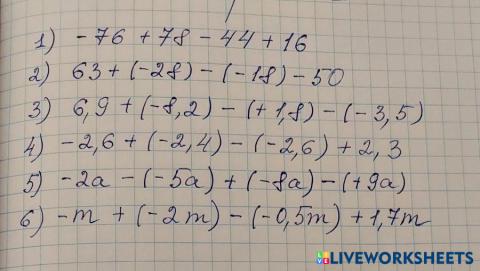 1) -76 + 78 - 44 + 16
2) 63 + (-28) - (-18) - 50
3) 6,9 + (-8,2) - (+1,8) - (-3,5)
4) -2,6 + (-2,4) - (-2,6) + 2,3
5) -2a - (-5a) + (-8a) - (+9a)
6) -m + (-2m) - (-0,5m) + 1,7m
LIVEWORKSHEETS